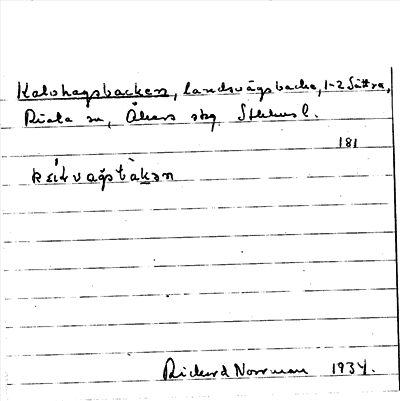 Kalvhagsbacken, landsvägsbacke, 1-2 Sättra,
Riala sn, Åkers skg Sthlms l.
181
Rickard Norrman 1934.